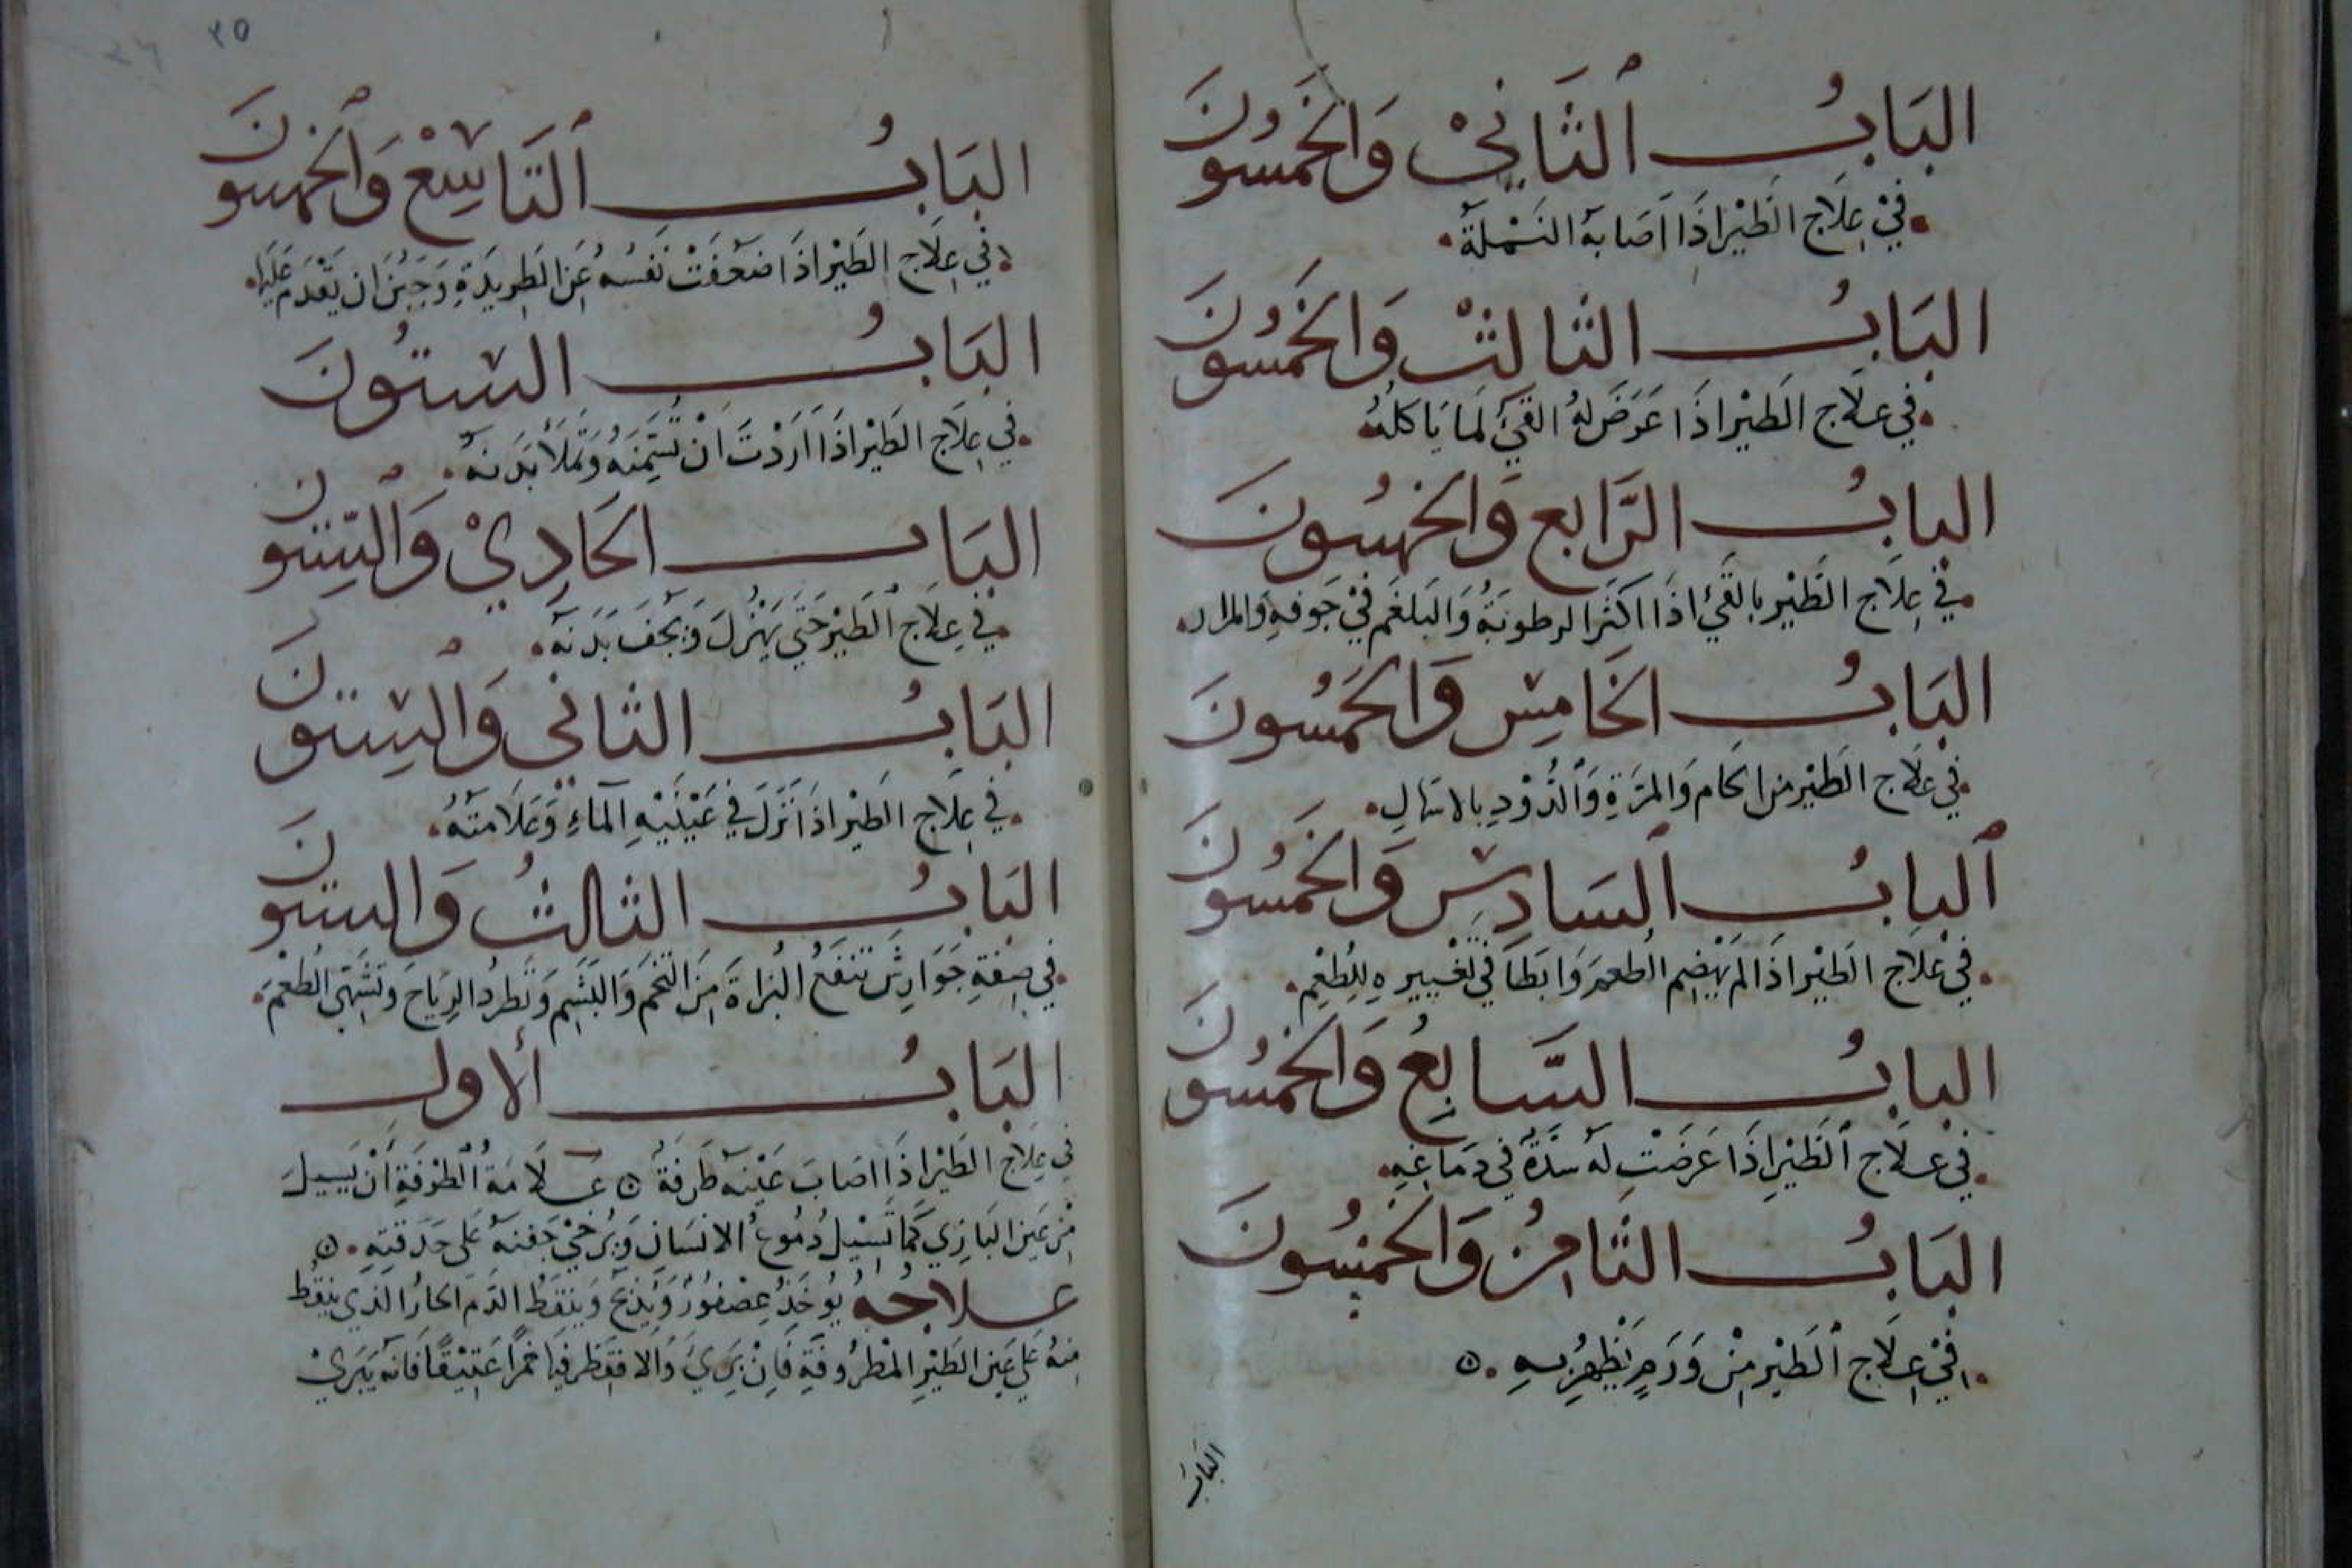 البَابُ ٱلثَّانِيْ وَالخَمسُونَ
فِيْ عِلَاج الطَيْر اذَا اَصَابهُ النَّمْلَة
البَابُ الثالثْ وَالخَمسُونَ
في علَاج الطَيْر اذَا عَرَضَ لهُ القَيْ لمَا يَاكلهُ
البابُ الرَّابع وَالخَمسُونَ
في عِلَاج الطَيْر بالقَيْ اذَا اكثَر الرطوبَةُ وَالبَلغَم فيْ جَوفهِ وَالمرار
البَابُ الخَامِسْ وَالخَمسُونَ
في علَاج الطَيْر من الحَام وَالمرَةِ وَٱلدُّوْدِ بالاسهَالِ
ٱلبابُ ٱلسَادِسْ وَالخَمسُونَ
فيْ علَاج الطَيْر اذَا لم يَهْضِم الطعمَ وَابطَا في تغْييرهِ لِلطعْمِ
البابُ السَّابِعُ وَالخَمسُونَ
في علَاج ٱلطَيْرِ اذَا عَرضَتِ لهُ سدَةٌ في دمَاغِهِ
البَابُ الثَامِنُ وَالخَمسُونَ
فِيْ عِلَاج ٱلطَيْر مِنْ وَرَمٍ يَظْهرُ بهِ
البَابُ
٢٥
البَابُ ٱلتَاسِعْ وَٱلخَمسُونَ
في عِلَاج الطَيْر اذَا ضَعفَتْ نَفسُهُ عَن الطَرِيدَةِ وَجَبُنَ ان يَقْدَم عَليهَا
البَابُ الستُونَ
في عِلَاج الطَيْر اذَا اَرَدْتَ اَنْ تُسَمِّنَهُ وَتملَأ بَدَنهُ
البَاب الحَادِيْ وَٱلسِّتونَ
في عِلَاج ٱلطَيْر حَتَى يَهْزُلَ وَيجفَ بَدَنهُ
البَابُ الثانيْ وَالسِتونَ
في عِلَاج الطَيْر اذَا نَزَلَ في عَيْنَيْهِ ٱلماءُ وَعَلَامتهُ
البَابُ الثالثُ وَالستونَ
في صِفةِ جَوَارِشَ تنفَعُ البُزاةَ مِنَ التُخَم وَالبَشَمِ وَتطردُ الرِيَاحَ وَتشَهّي الطعْمَ
البَابُ الأول
في عِلَاج الطَيْر اذَا اصَابَ عَيْنهُ طَرفَةٌ ۞ عَلَامَةُ ٱلطَرْفَةِ أَنْ يَسِيلَ
مِنْ عَين البَازِي كَمَا تَسْيلُ دُمُوعُ الانسَان وَيُرخيْ جَفنهُ عَلى حَدَقتِهِ ۞
علاجُه يُوخَذُ عُصْفُورٌ وَيُذبَحُ وَيُنقَطُ الدَمُ الحَارُ الذي ينقُط
مِنهُ عَلى عَين الطَيْرِ المَطْرُوفَةِ فَإنْ بَرِيَ وَالا فقطر فيهَا خمْرًا عَتِيْقًا فَانهُ يَبرَيْ